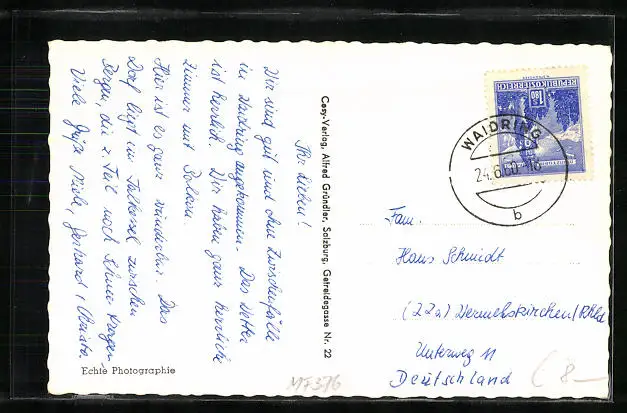 Ihr Lieben!
Wir sind gut und ohne Zwischenfälle
in Waidring angekommen. Das Wetter
ist herrlich. Wir haben ganz herrliche
Zimmer mit Balkon.
Hier ist es ganz wunderbar. Das
Dorf liegt im Talkessel zwischen
Bergen, die z. Teil noch Schnee tragen.
Viele Grüße Gerhard,
Echte Photographie
Cosy-Verlag, Alfred Gründler, Salzburg, Getreidegasse Nr. 22
REPUBLIK ÖSTERREICH
1.80
WAIDRING
24.6.60
b
Fam.
Hans Schmidt
(22a) Wermelskirchen/Rhld
Unterweg 11
Deutschland
MF376
8-